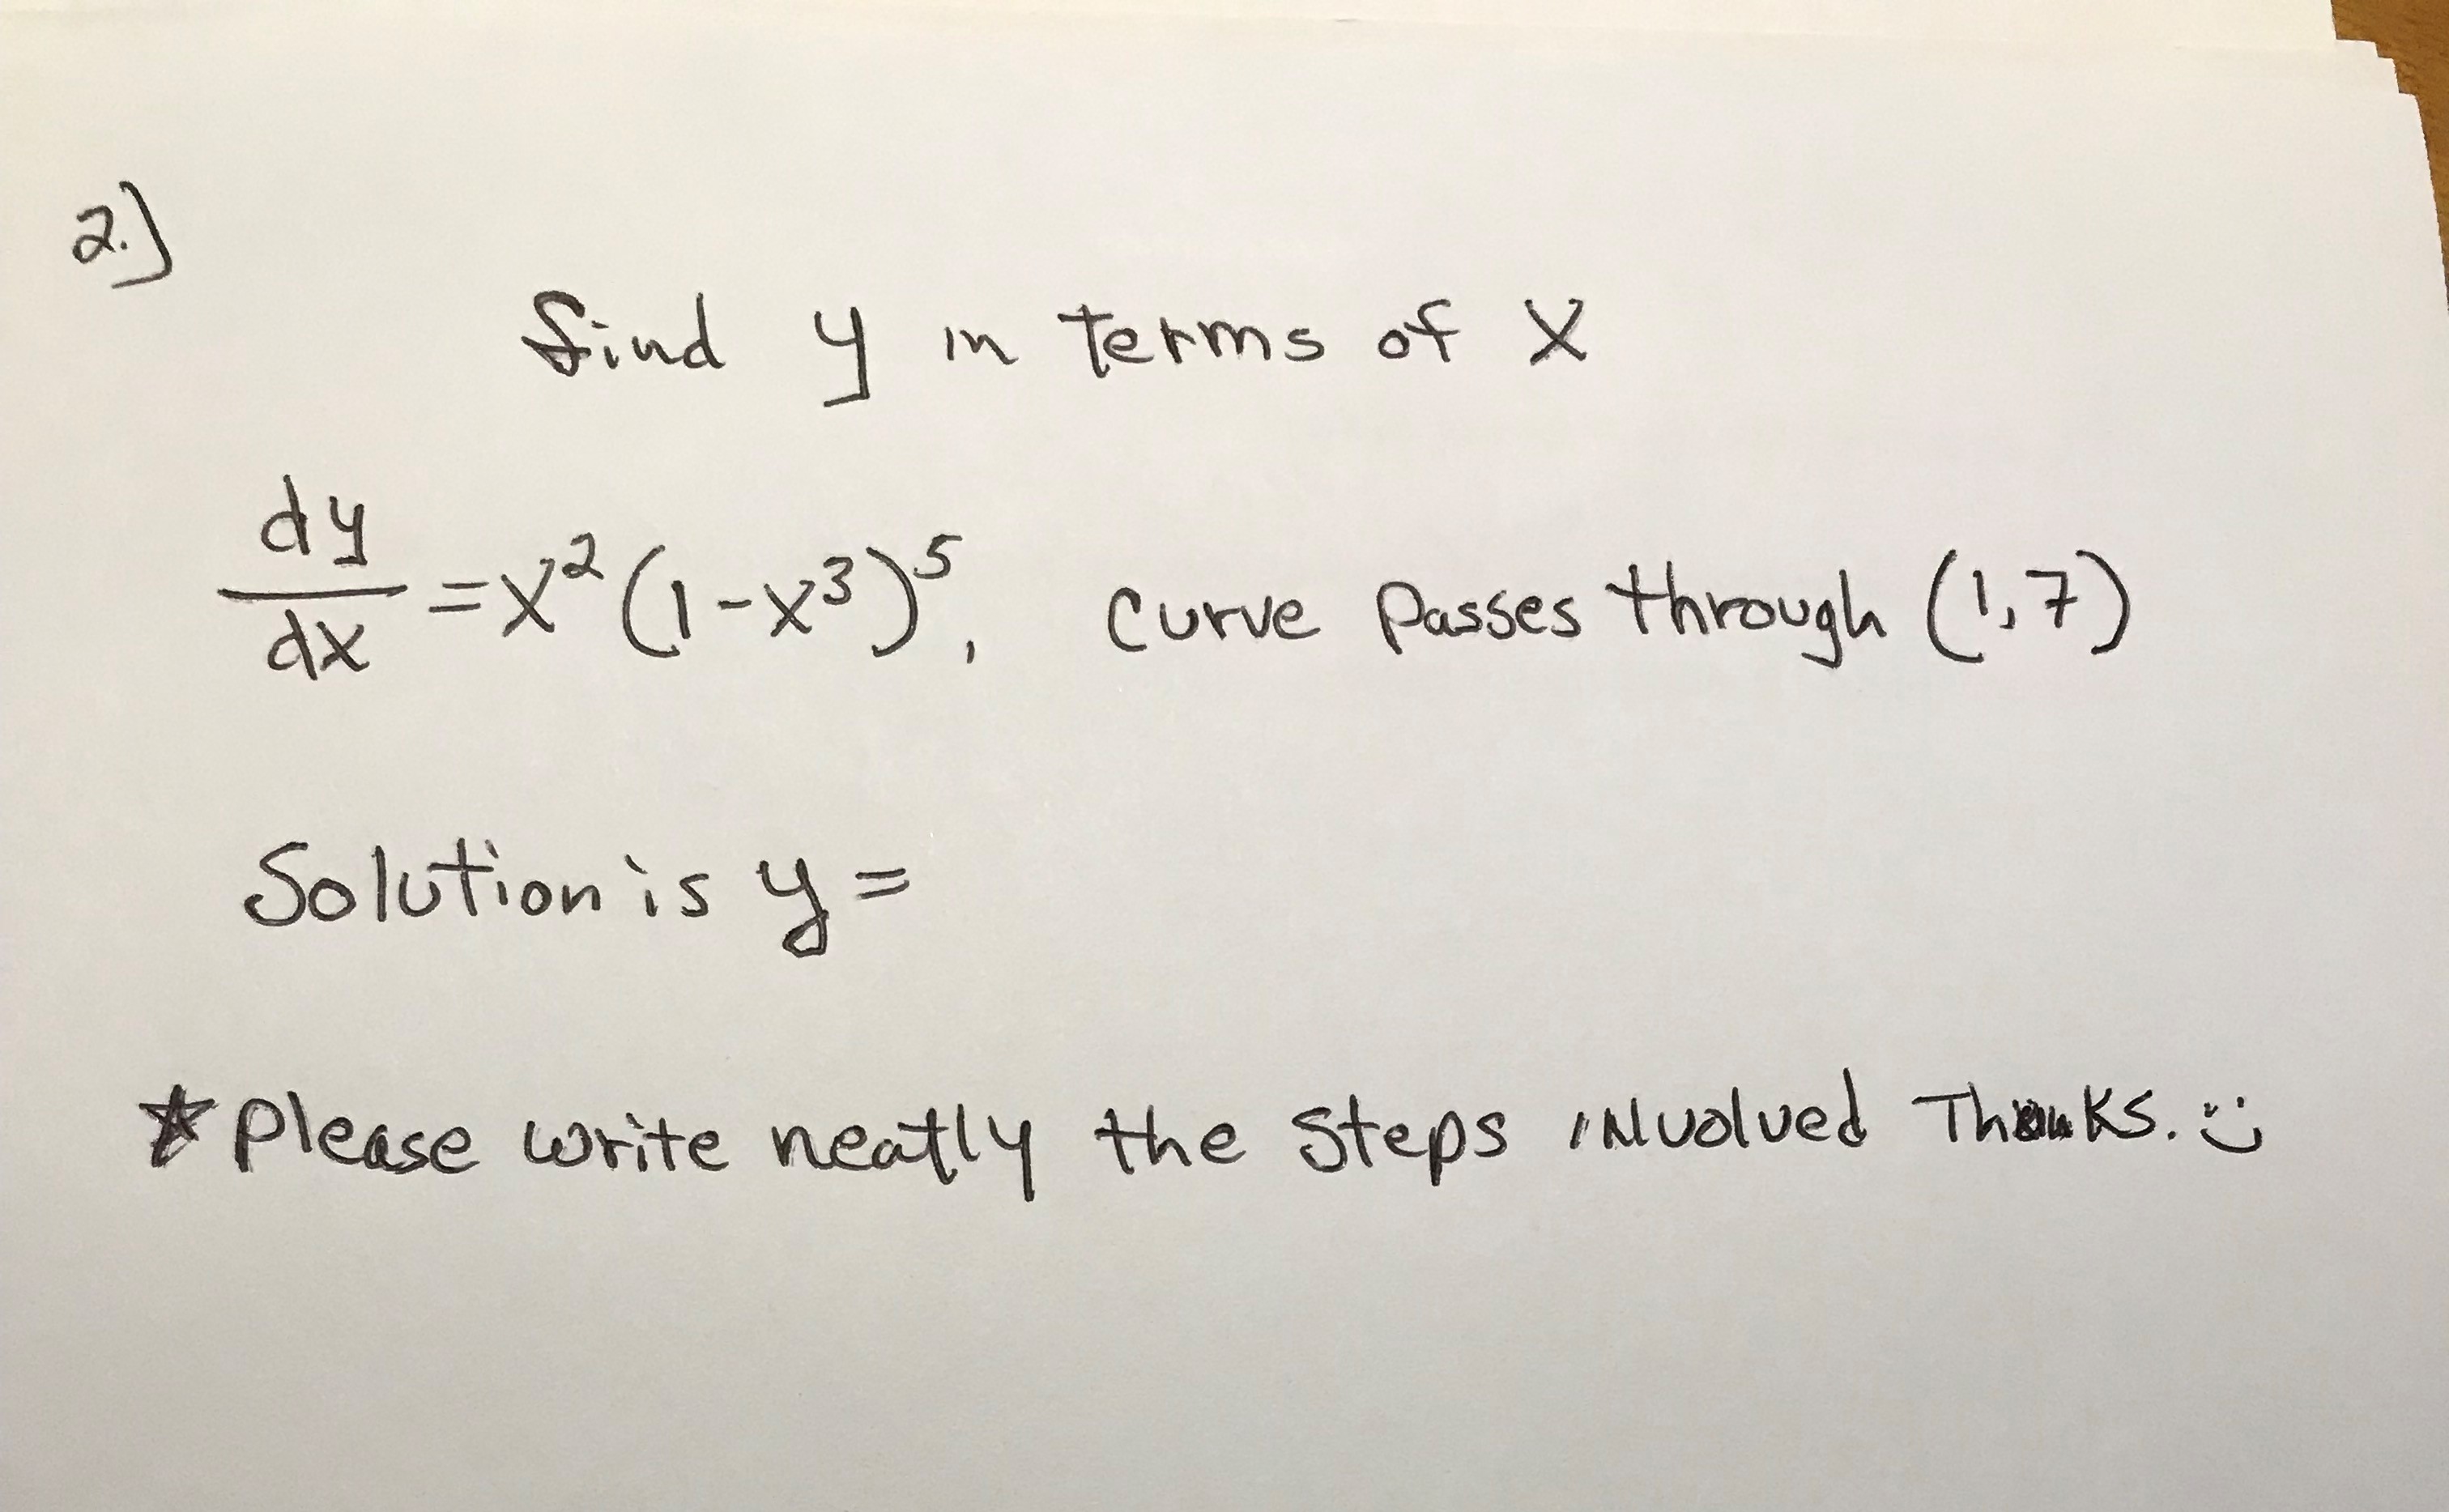 2.)
find y in terms of x
dy/dx = x²(1-x³)⁵, curve passes through (1,7)
Solution is y =
☆ Please write neatly the steps involved Thanks. :)